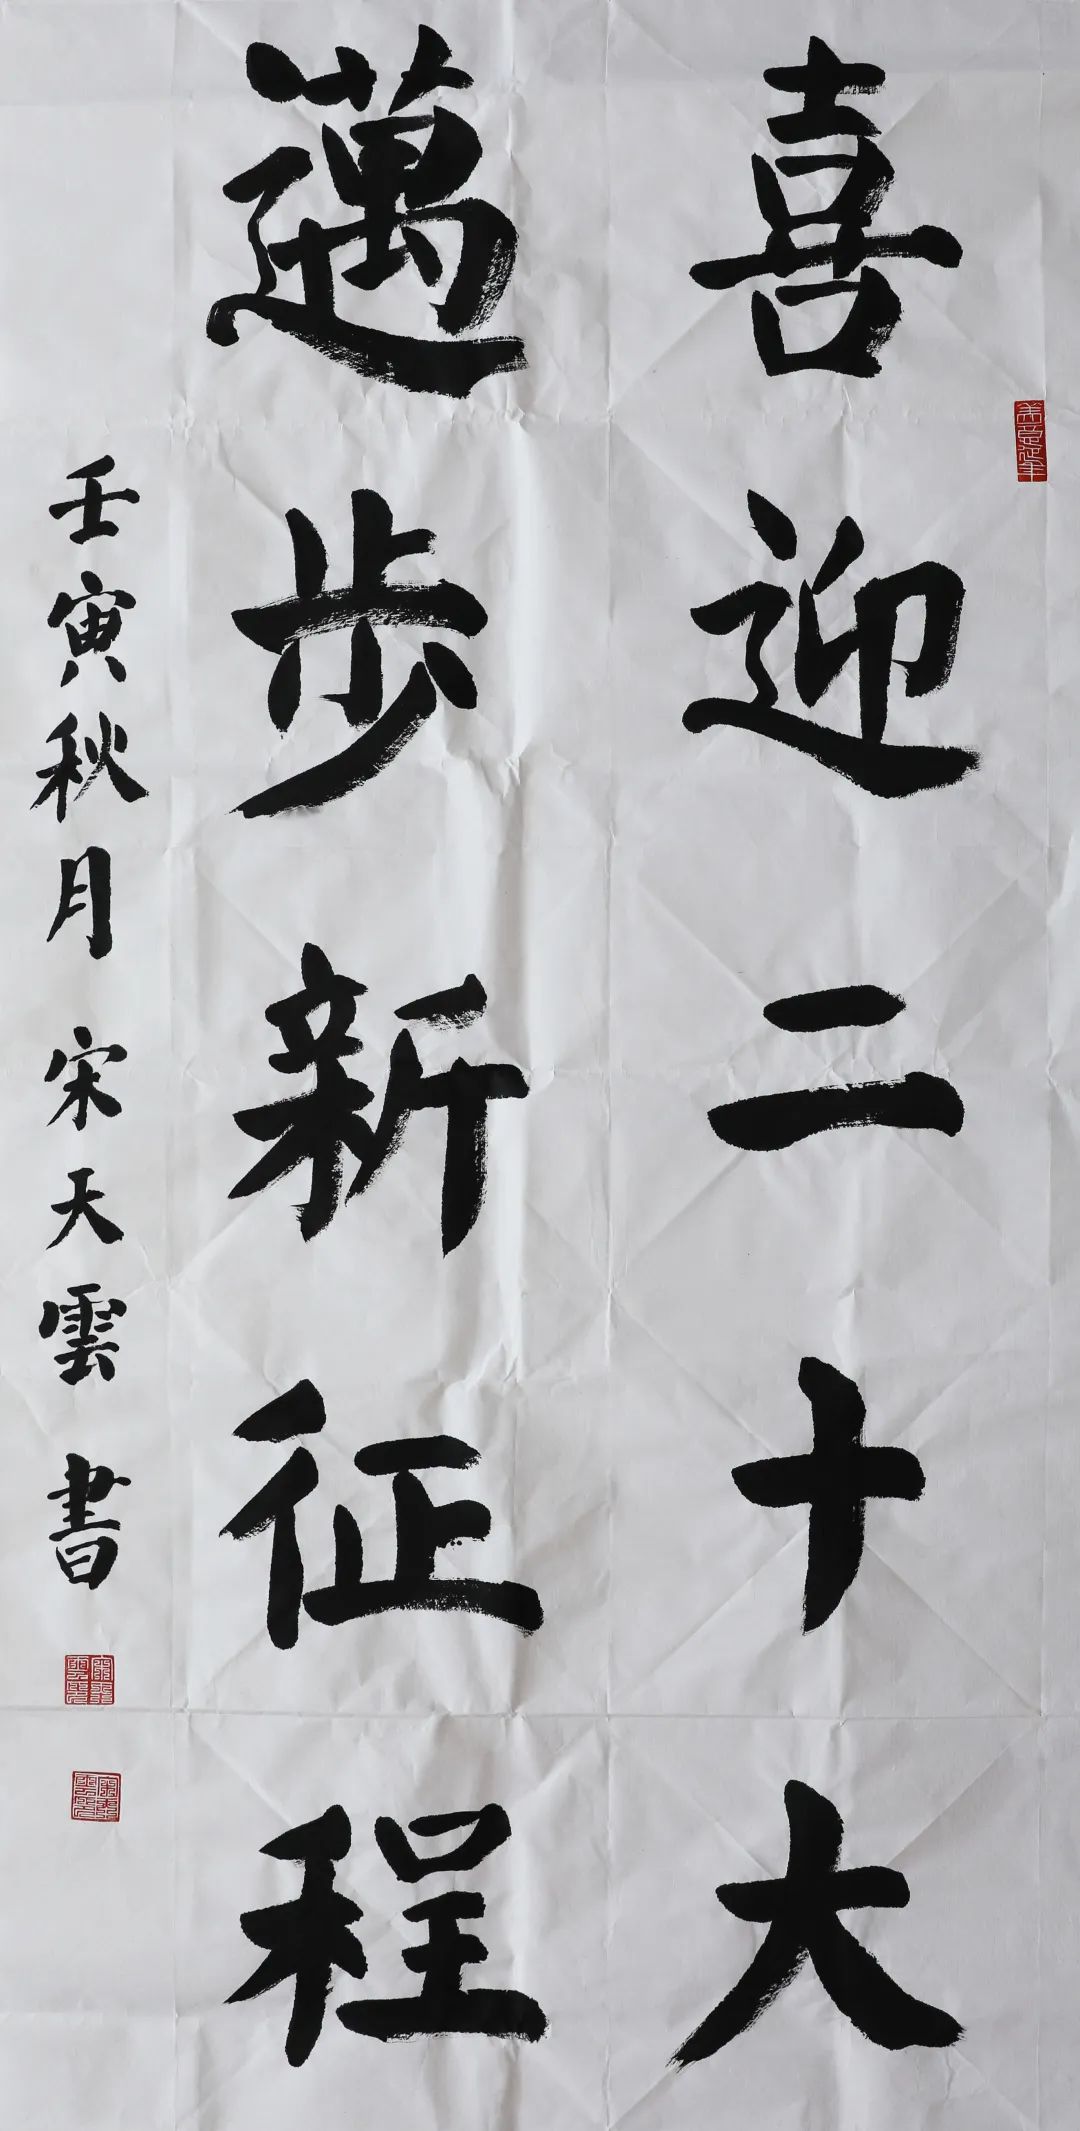 喜迎二十大
邁步新征程
壬寅秋月 宋天雲書